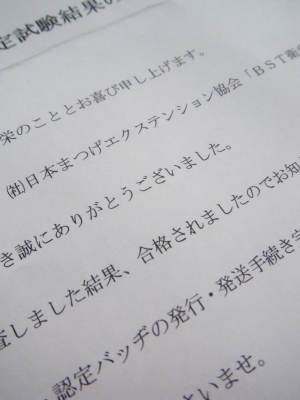 定試験結果の
栄のこととお喜び申し上げます。
㈳日本まつげエクステンション協会「ＢＳＴ衛
き誠にありがとうございました。
査しました結果、合格されましたのでお知
認定バッヂの発行・発送手続き
さいませ。